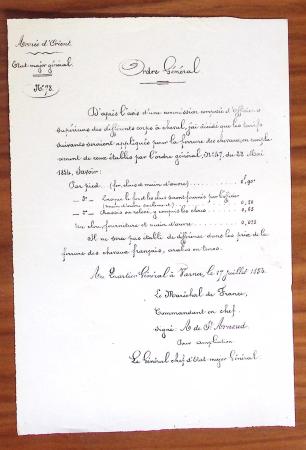 Armée d'Orient
Etat-major général.
N° 78.
Ordre Général
D'après l'avis d'une commission composée d'officiers
supérieurs des différents corps à cheval, j'ai décidé que les tarifs
suivants seraient appliqués pour la ferrure des chevaux, en rempla-
cement de ceux établis par l'ordre général, N° 47, du 28 Mai
1854, Savoir:
Par pied (fer, clous et main d'œuvre)
_ d° _ Lorsque le fer et les clous sont fournis par l'officier
(main d'œuvre seulement)
_ d° _ relevé, y compris les clous
Un clou, fourniture et main d'œuvre
Il ne sera pas établi de différence dans les prix de la
ferrure des chevaux français, arabes ou turcs.
Au Quartier Général à Varna, le 17 juillet 1854.
Le Maréchal de France,
Commandant en chef.
signé: A. de St Arnaud.
Pour ampliation
Le Général chef d'Etat-major Général.